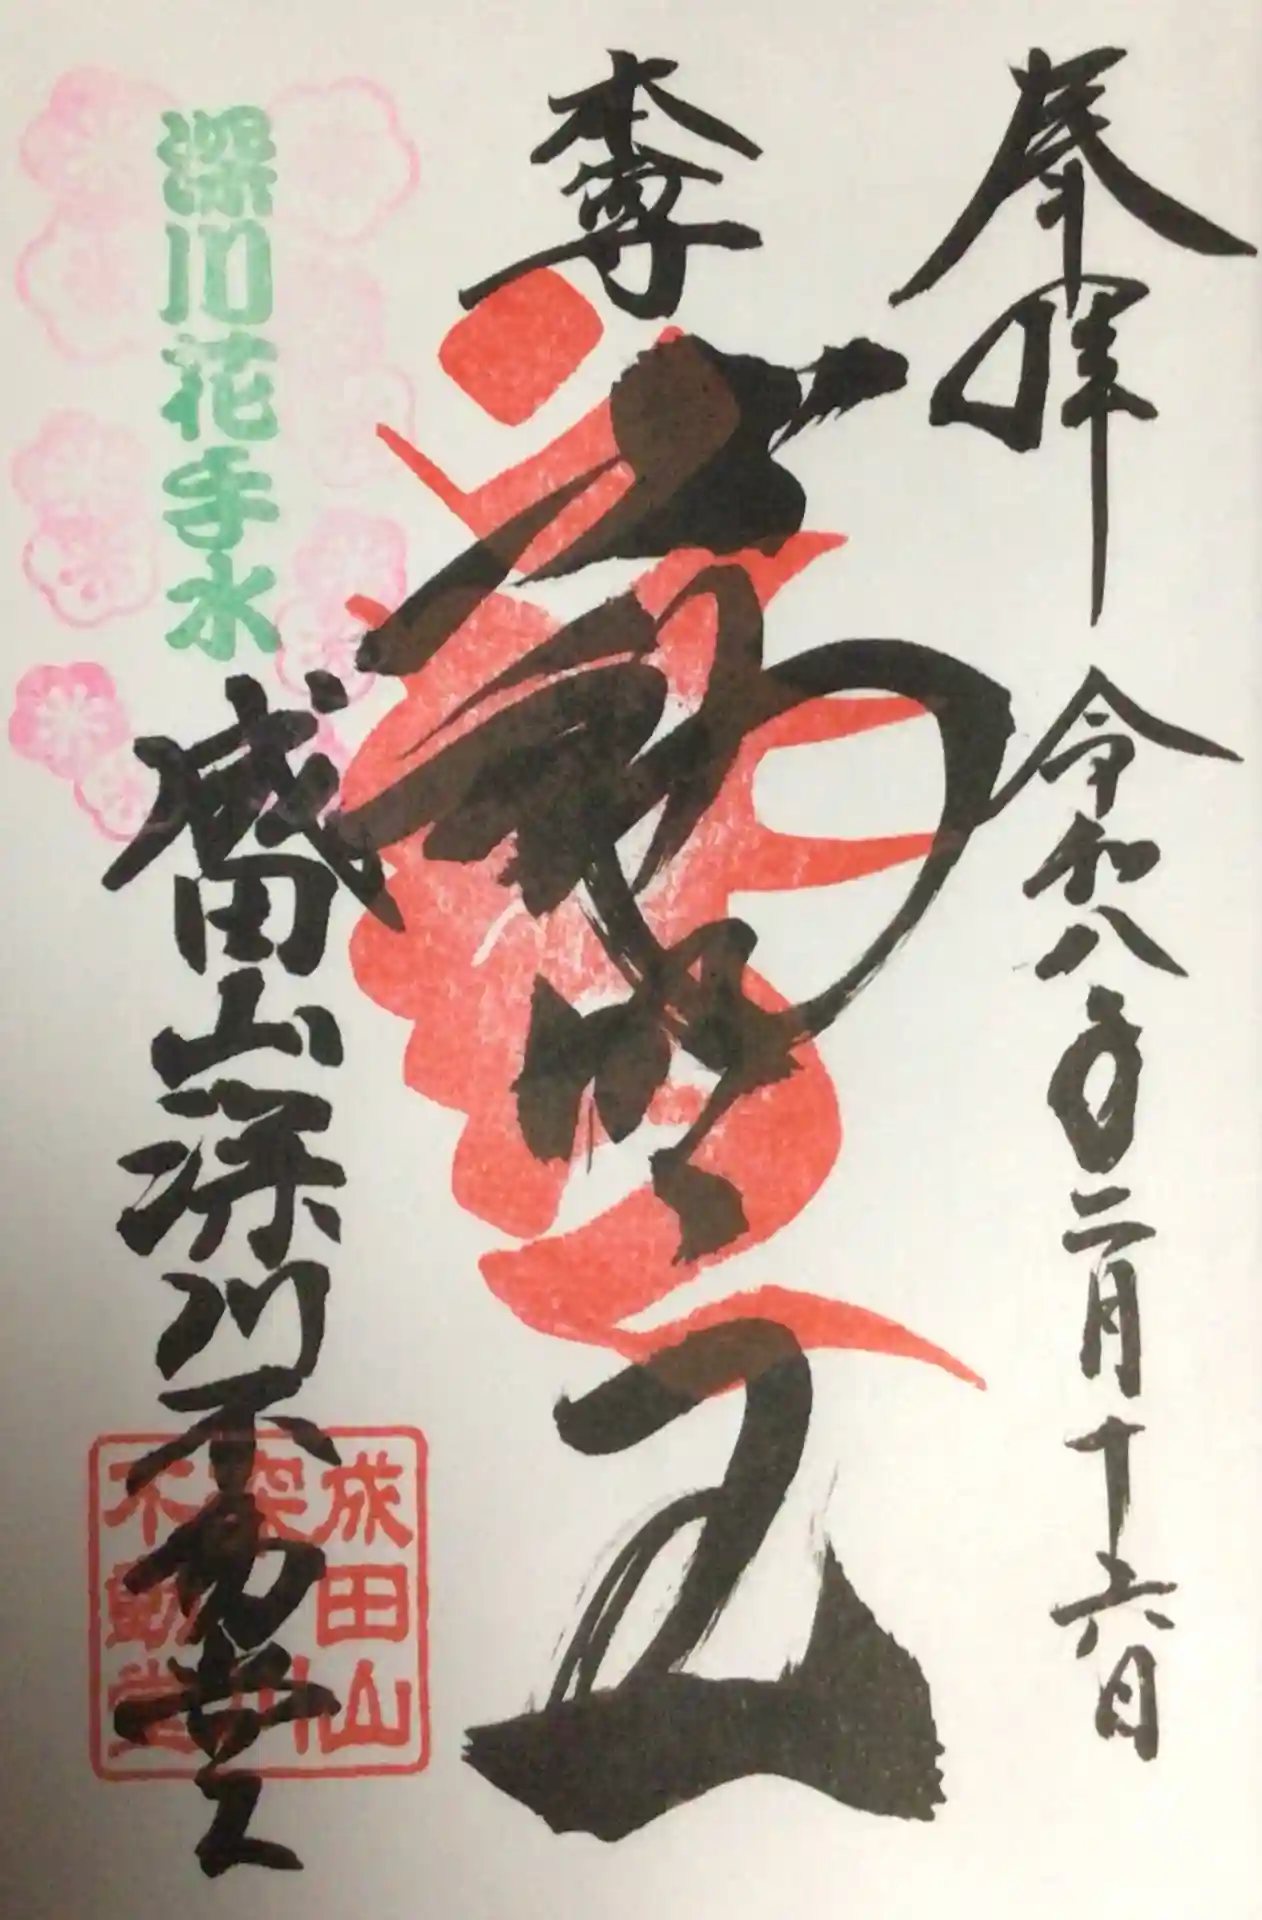 奉拝 令和八年二月十六日
本尊
不動明王
深川花手水
成田山深川不動堂
成田山
深川
不動堂